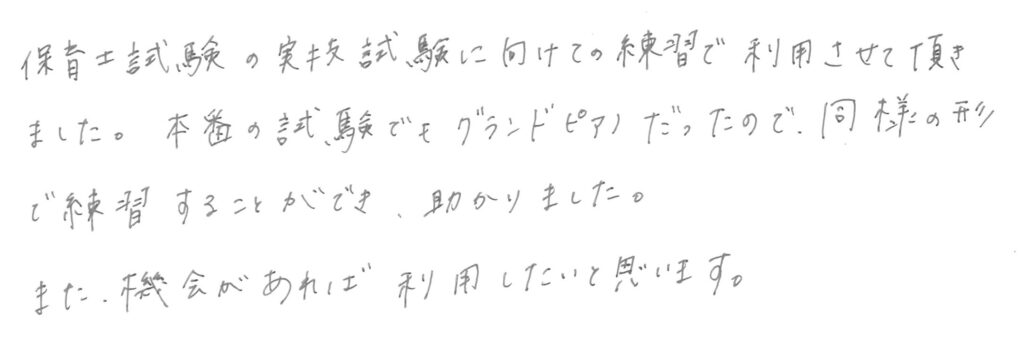 保育士試験の実技試験に向けての練習で利用させて頂き
ました。本番の試験でもグランドピアノだったので、同様の形
で練習することができ、助かりました。
また、機会があれば利用したいと思います。